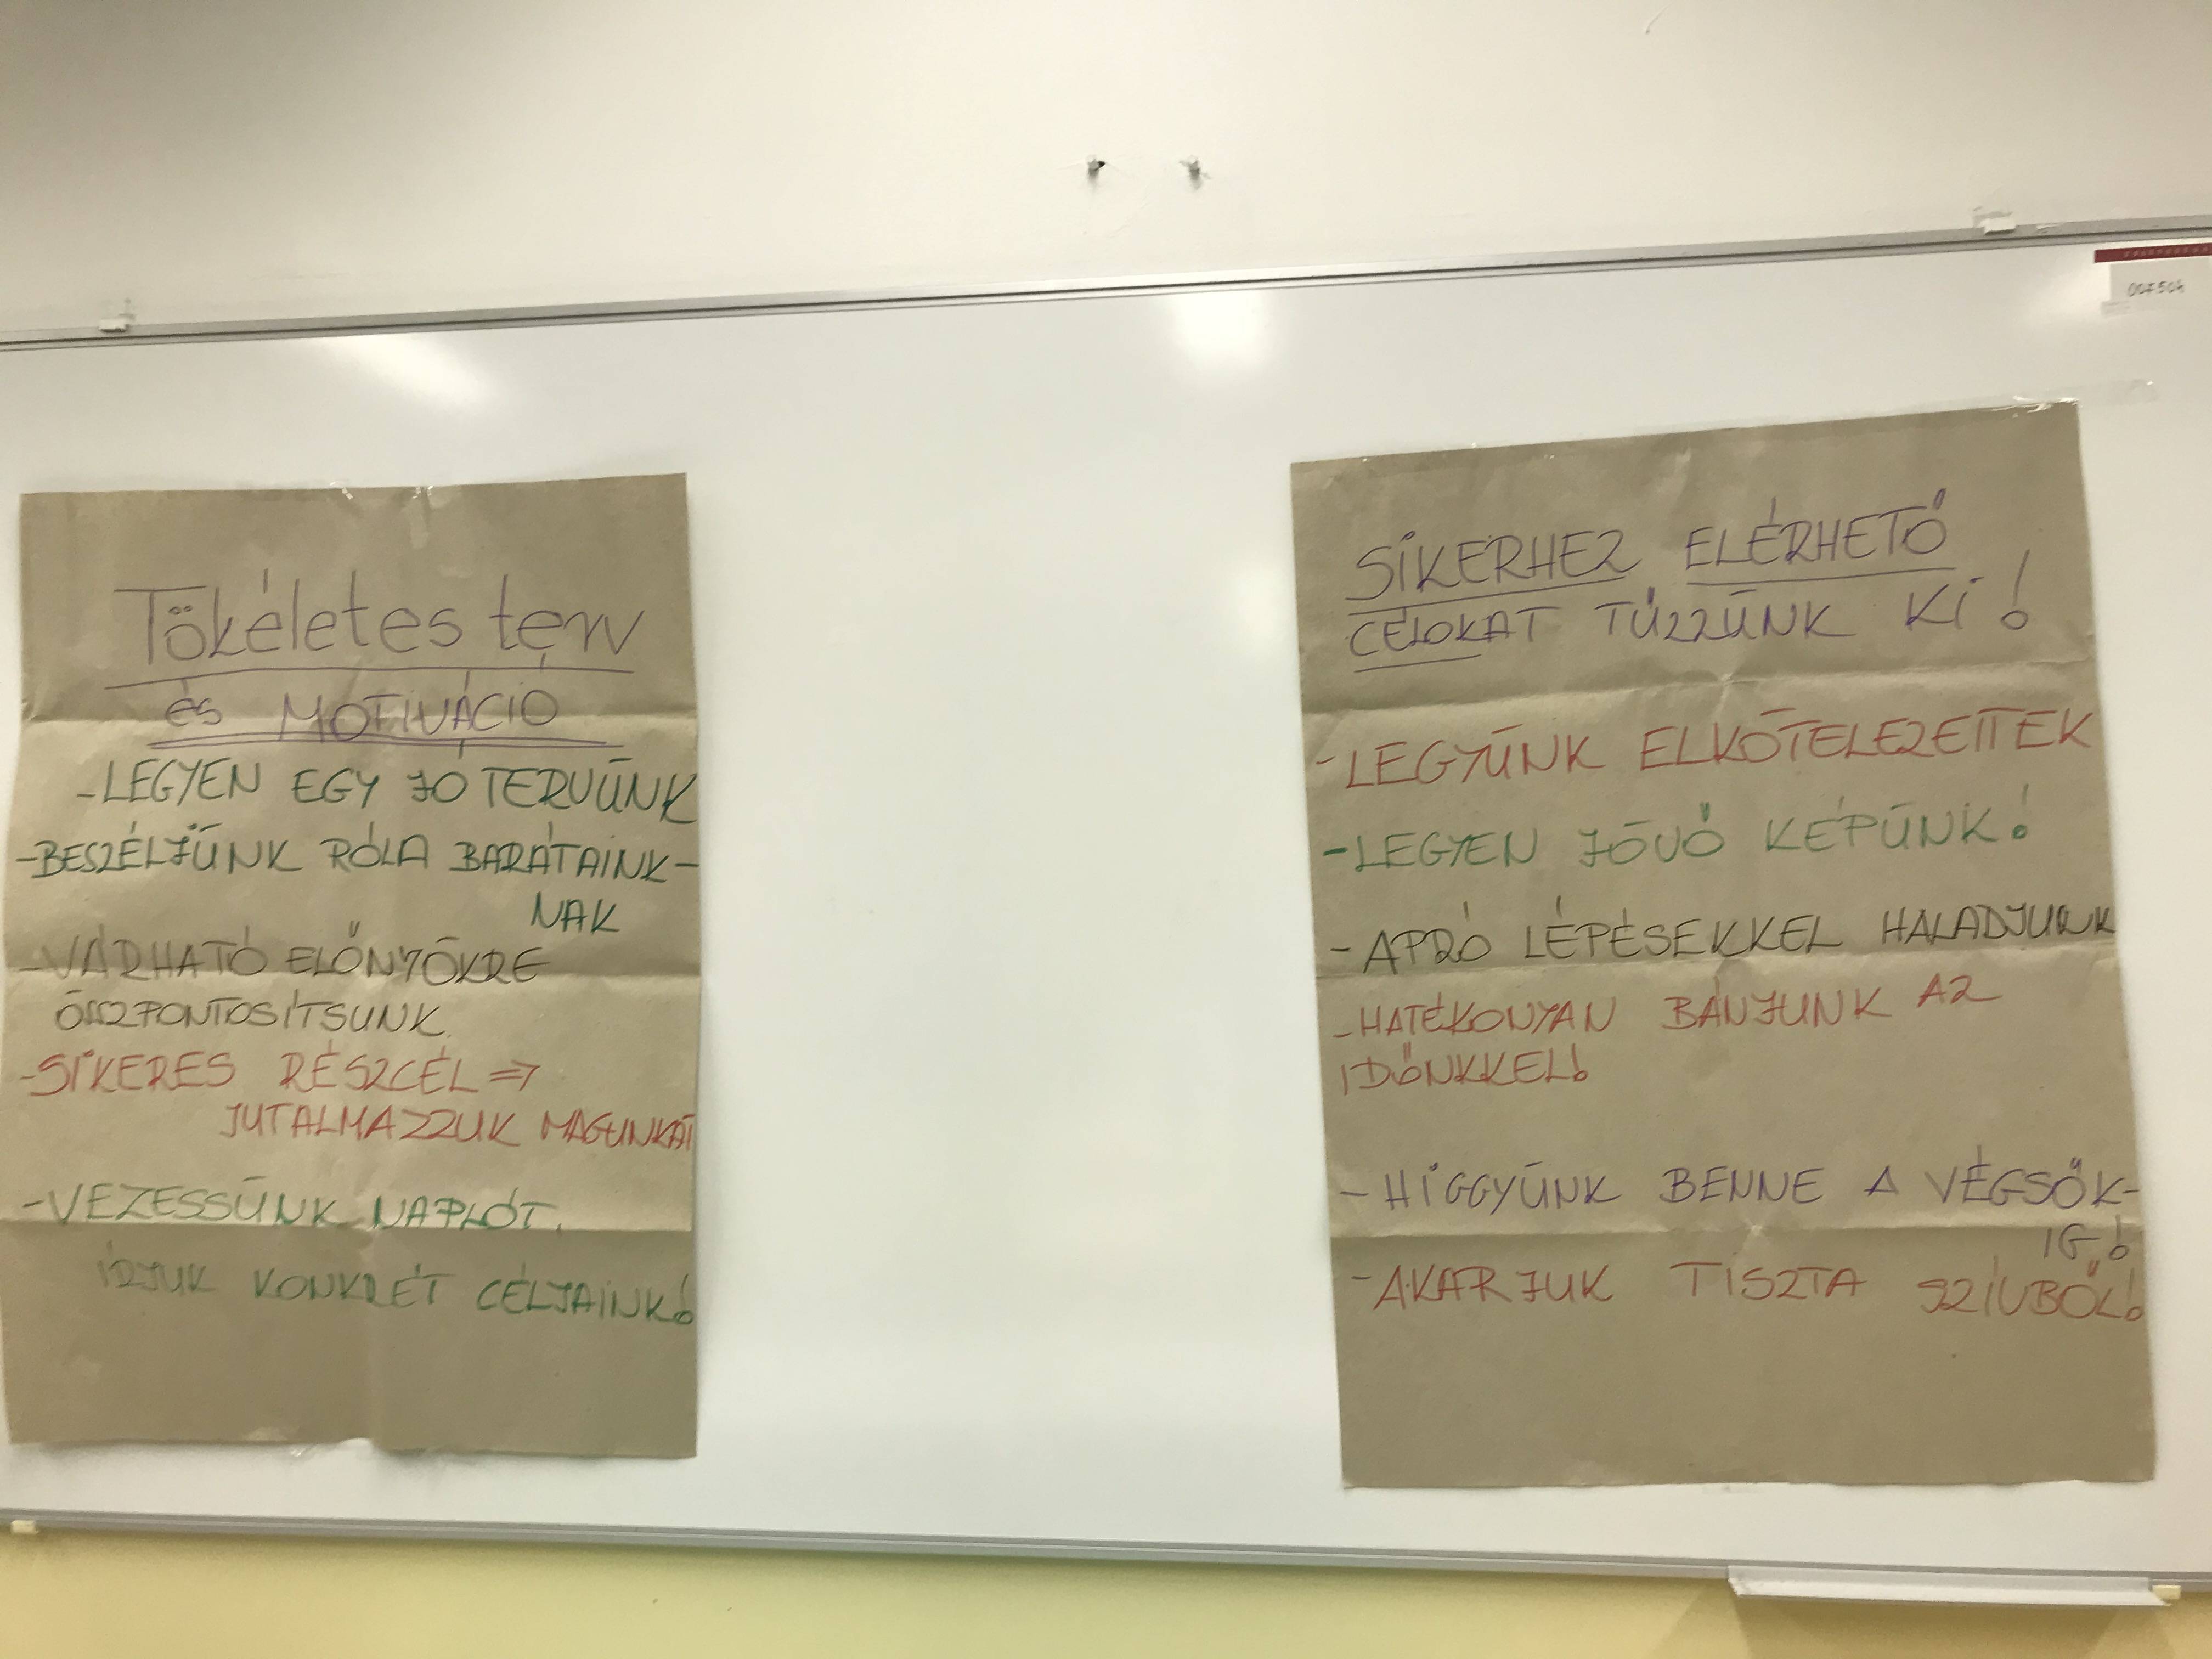 Tökéletes terv
és MOTIVÁCIÓ
-LEGYEN EGY JÓ TERVÜNK
-BESZÉLJÜNK RÓLA BARÁTAINK-
NAK
-VÁRHATÓ ELŐNYÖKRE
ÖSSZPONTOSÍTSUNK.
-SIKERES RÉSZCÉL ⇒
JUTALMAZZUK MAGUNKAT
-VEZESSÜNK NAPLÓT.
ÍRJUK KONKRÉT CÉLJAINK!
SIKERHEZ ELÉRHETŐ
CÉLOKAT TŰZZÜNK KI!
-LEGYÜNK ELKÖTELEZETTEK
-LEGYEN JÖVŐ KÉPÜNK!
-APRÓ LÉPÉSEKKEL HALADJUNK
-HATÉKONYAN BÁNJUNK AZ
IDŐNKKEL!
-HIGGYÜNK BENNE A VÉGSŐK-
IG!
-AKARJUK TISZTA SZÍVBŐL!
007506